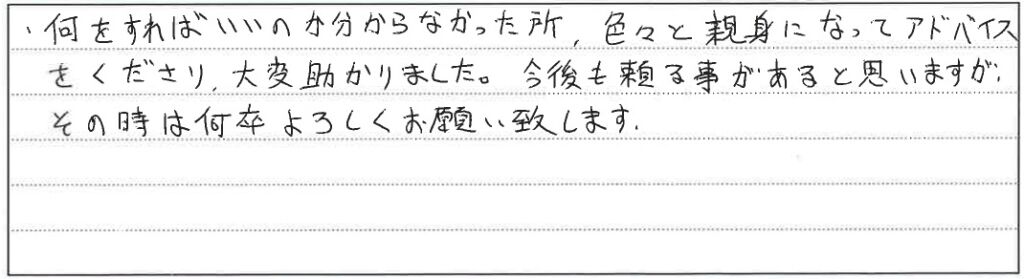 ・何をすればいいのか分からなかった所、色々と親身になってアドバイス
をくださり、大変助かりました。今後も頼る事があると思いますが、
その時は何卒よろしくお願い致します.